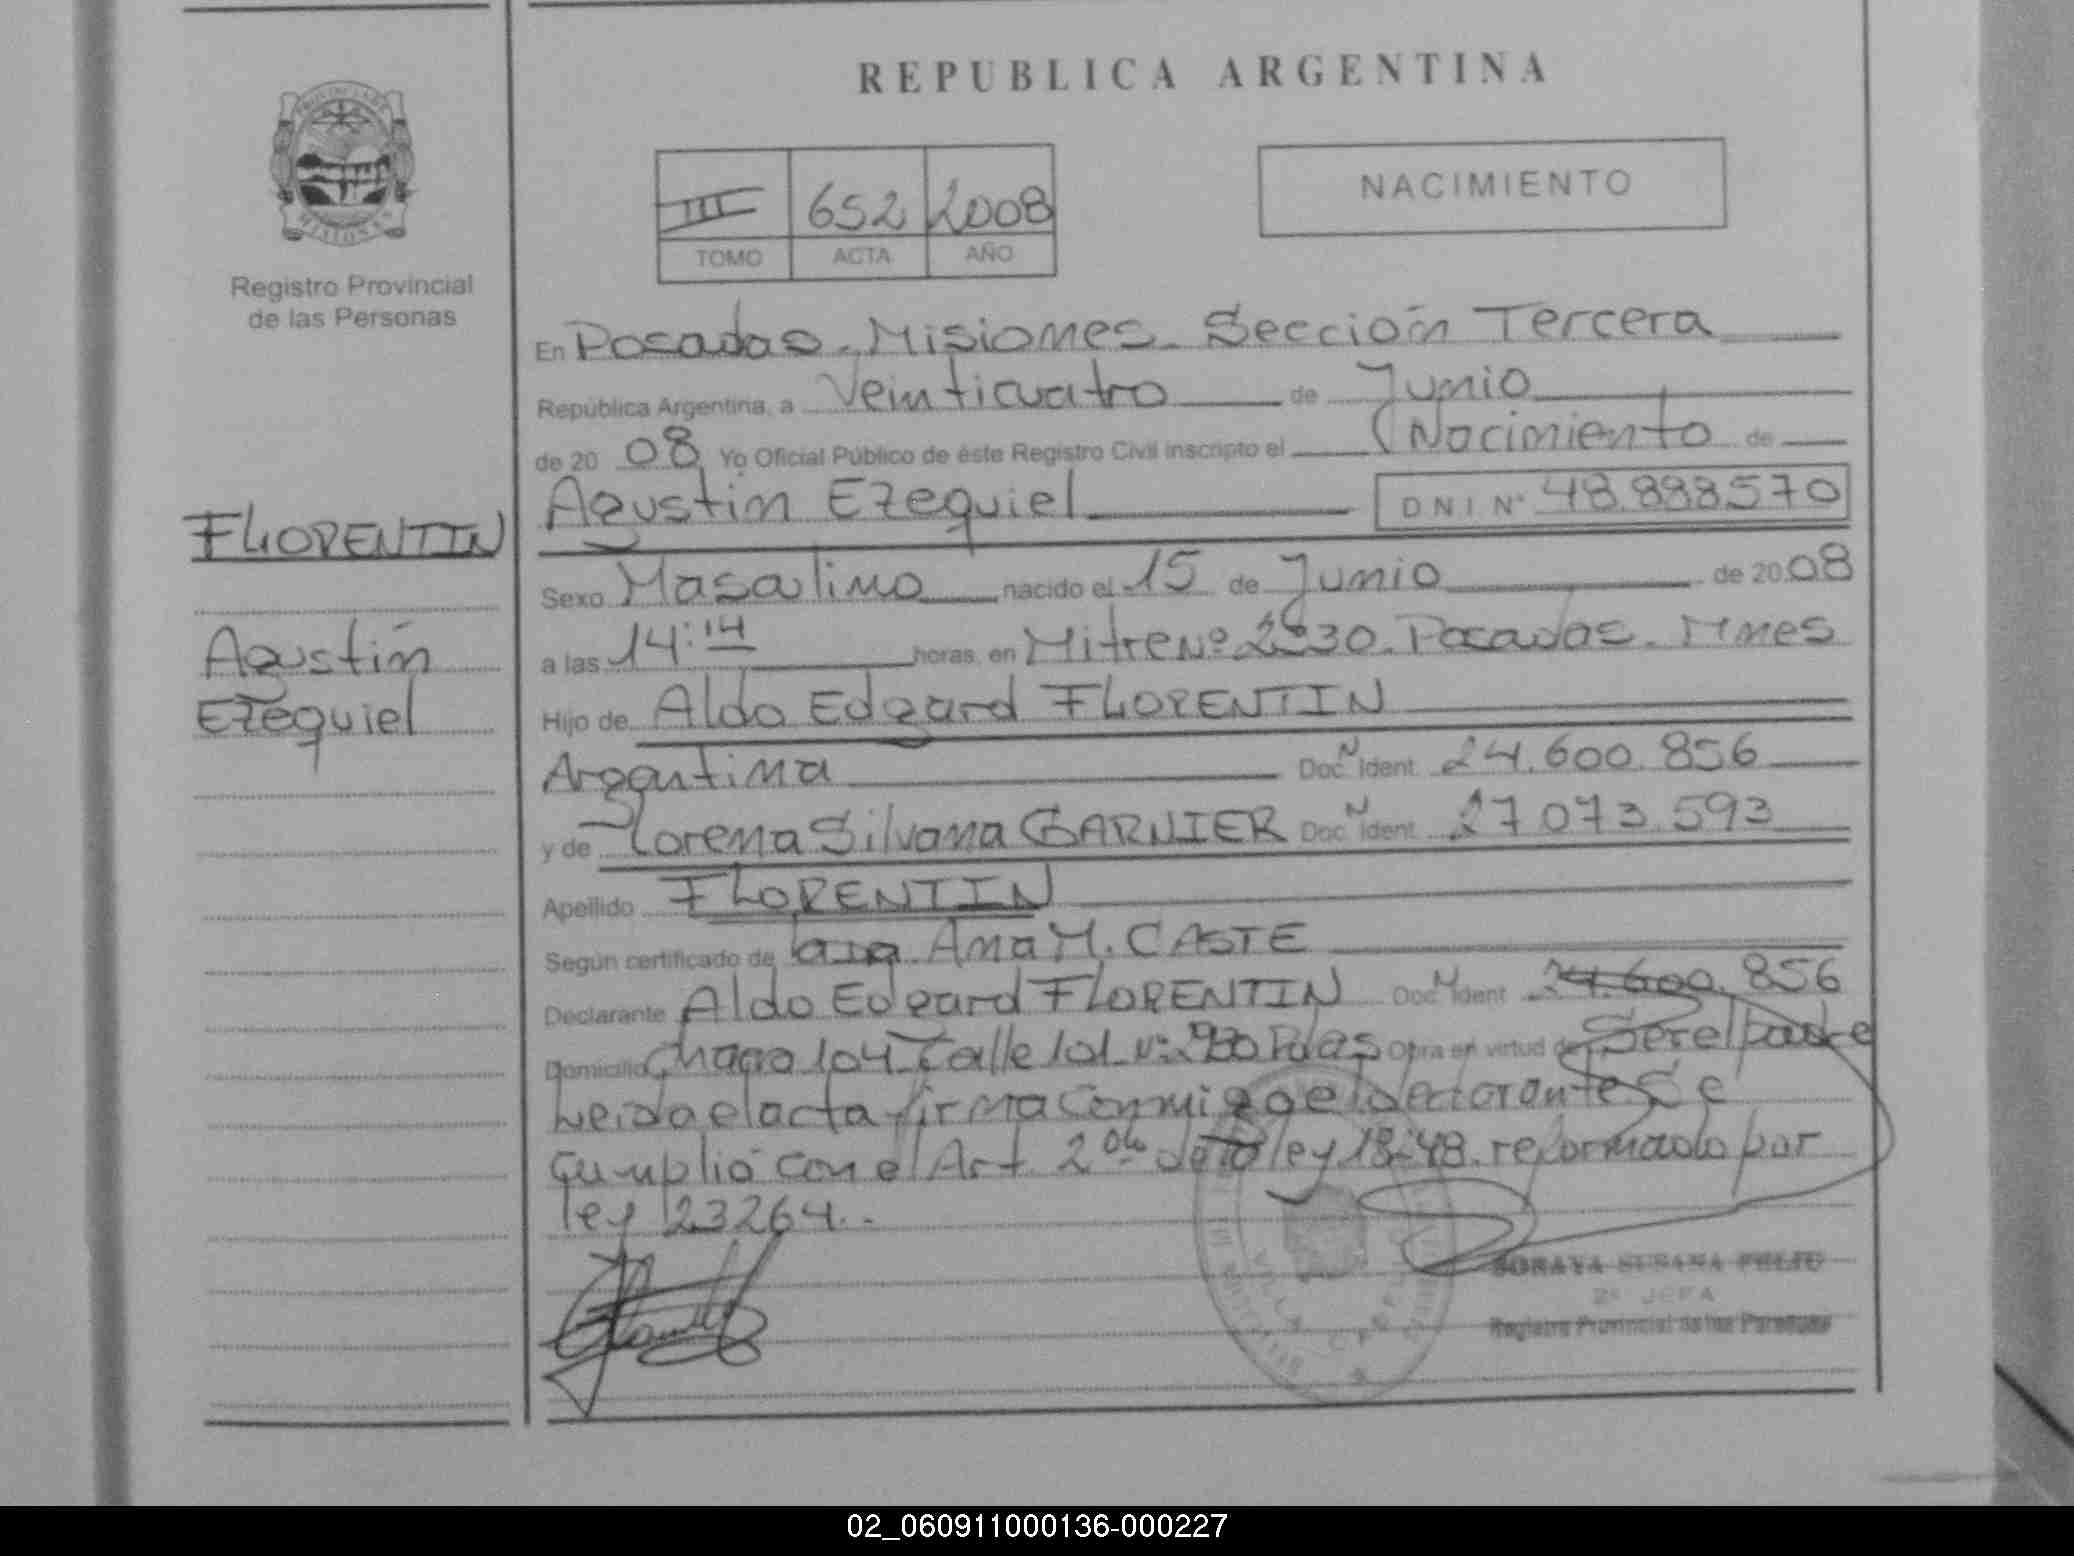 REPUBLICA ARGENTINA
NACIMIENTO
III 652 2008
TOMO ACTA AÑO
PROVINCIA DE
MISIONES
Registro Provincial
de las Personas
FLORENTIN
Agustín
Ezequiel
En Posadas. Misiones. Sección Tercera
República Argentina, a Veinticuatro de Junio
de 2008 Yo Oficial Público de éste Registro Civil inscripto el Nacimiento de
Agustín Ezequiel DNI N° 48.888570
Sexo Masculino nacido el 15 de Junio de 2008
a las 14:14 horas, en Mitre Nº 2530. Posadas. Mnes
Hijo de Aldo Edgard FLORENTIN
Argentina Doc. N Ident. 24.600.856
y de Lorena Silvana GARNIER Doc. N Ident. 27.073.593
Apellido FLORENTIN
Según certificado de Ana M. CASTE
Declarante Aldo Edgard FLORENTIN Doc. N Ident. 24.600.856
Domicilio Chacra 104 Calle 101 Nº Pdas Obra en virtud de Ser el padre
Leida el acta firma conmigo el declarante Se
cumplió con el Art. 2 de la ley reformado por
ley 23264.
SORAYA SUSANA FELIU
2ª JEFA
Registro Provincial de las Personas
02_060911000136-000227